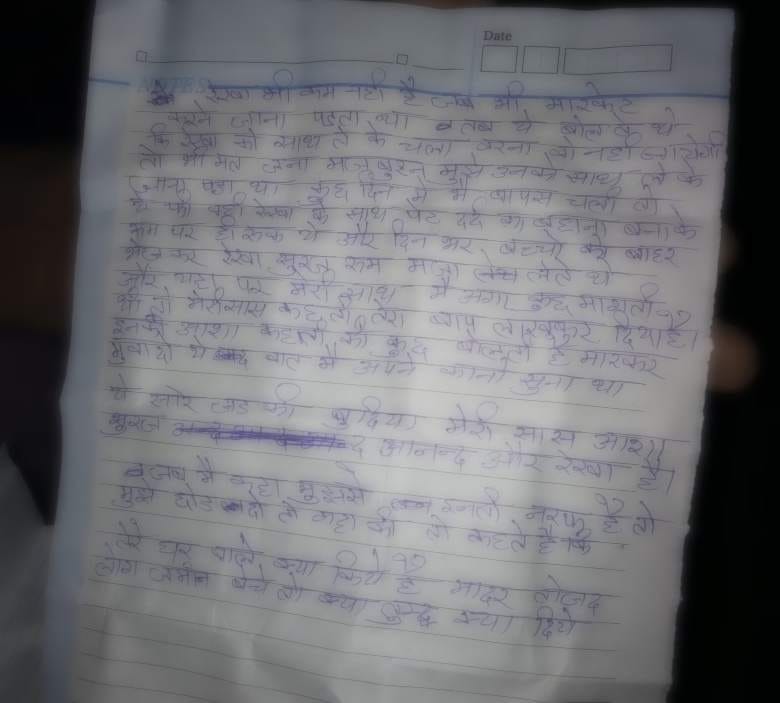 Date
NOTES
रेखा भी कम नही है जब भी मारकेट
करने जाना पड़ता था तब ये बोलते थे
कि रेखा को साथ ले के चलो वरना वो नही जायेगी
तो भी मत जाना मजबुरन मुझे उनको साथ ले के
जाना पड़ा था कुछ दिन मे मै वापस चली
रेखा के साथ पेट दर्द का बहाना बना के
रूम पर ही रूक थे और दिन भर बच्चो को बाहर
भेज कर रेखा सुरज रूम मजा लेते थे
और यहा पर मेरी सास मै अगर कुछ मांगती
थी तो मेरी सास कहती तेरा बाप दिया है।
आशा कहती की कुछ बोलती है मारकर
थे बात मै अपने कानो सुना था
ये सारे जड की बुढिया मेरी सास आशा
सुरज आनन्द और रेखा है।
जब मै कहा मुझसे इतनी नफरत है तो
मुझे छोड दो तो कहा की वो कहते है कि
तेरे घर वाले क्या किये है मादर
लोग जमीन बेचे तो क्या कुछ क्या दिये